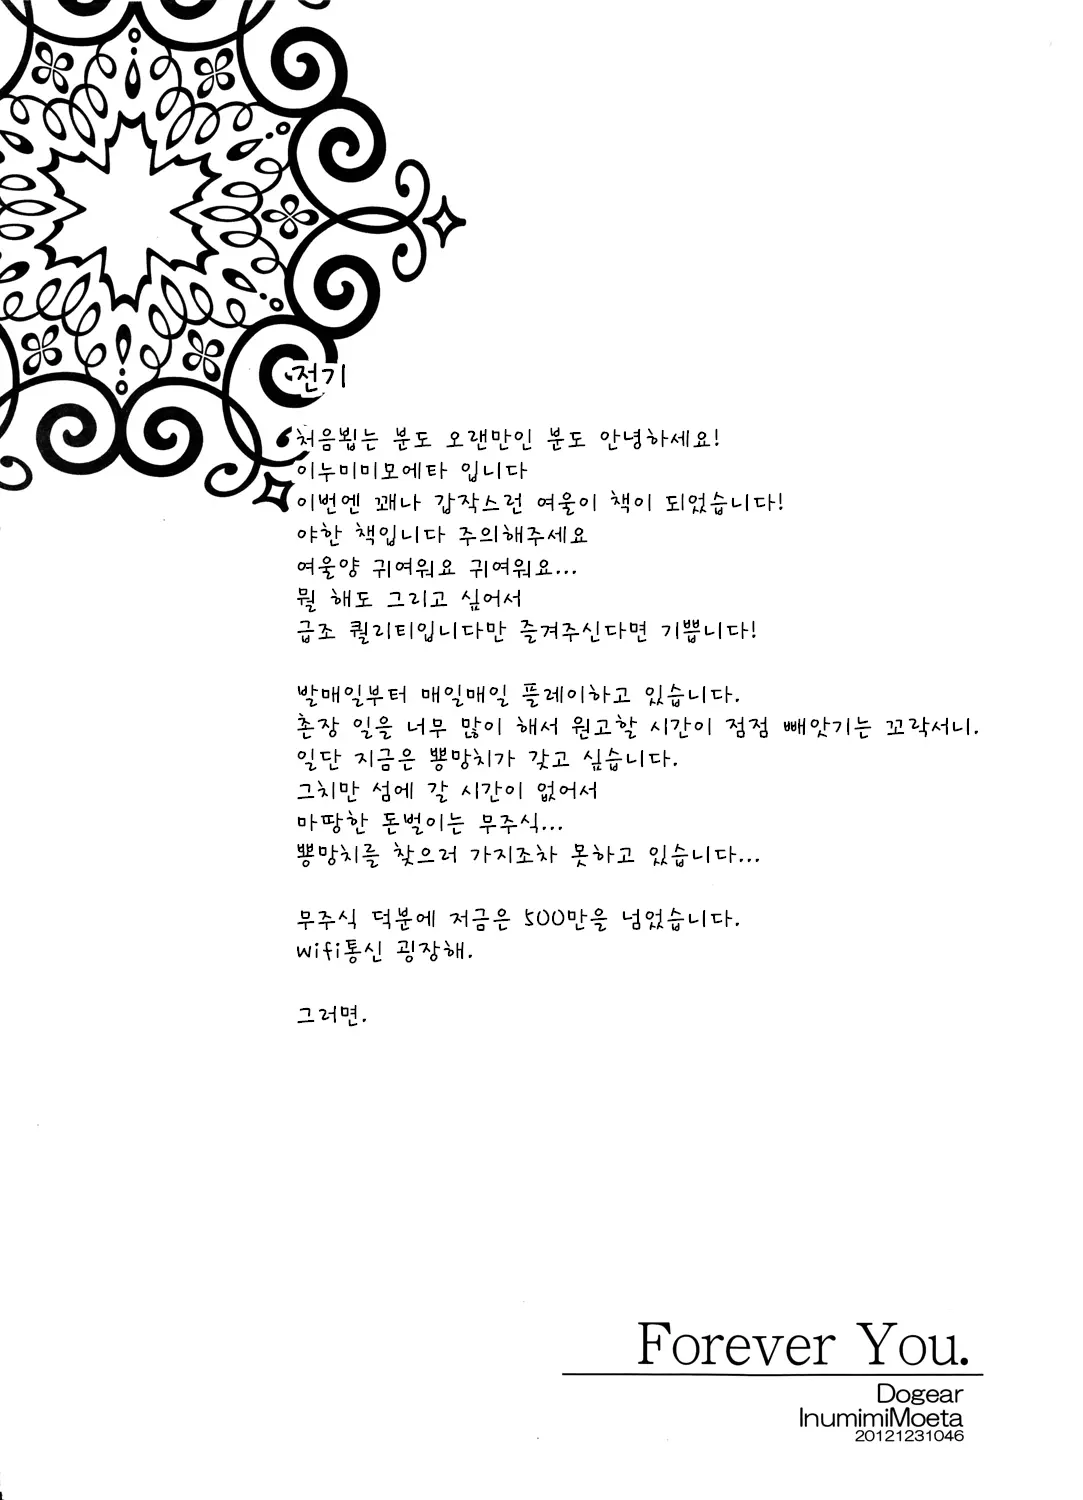 전기
처음뵙는 분도 오랜만인 분도 안녕하세요!
이누미미모에타 입니다
이번엔 꽤나 갑작스런 여울이 책이 되었습니다!
야한 책입니다 주의해주세요
여울양 귀여워요 귀여워요...
뭘 해도 그리고 싶어서
급조 퀄리티입니다만 즐겨주신다면 기쁩니다!
발매일부터 매일매일 플레이하고 있습니다.
촌장 일을 너무 많이 해서 원고할 시간이 점점 빼앗기는 꼬락서니.
일단 지금은 뿅망치가 갖고 싶습니다.
그치만 섬에 갈 시간이 없어서
마땅한 돈벌이는 무주식...
뿅망치를 찾으러 가지조차 못하고 있습니다...
무주식 덕분에 저금은 500만을 넘었습니다.
wifi통신 굉장해.
그러면.
Forever You.
Dogear
InumimiMoeta
20121231046